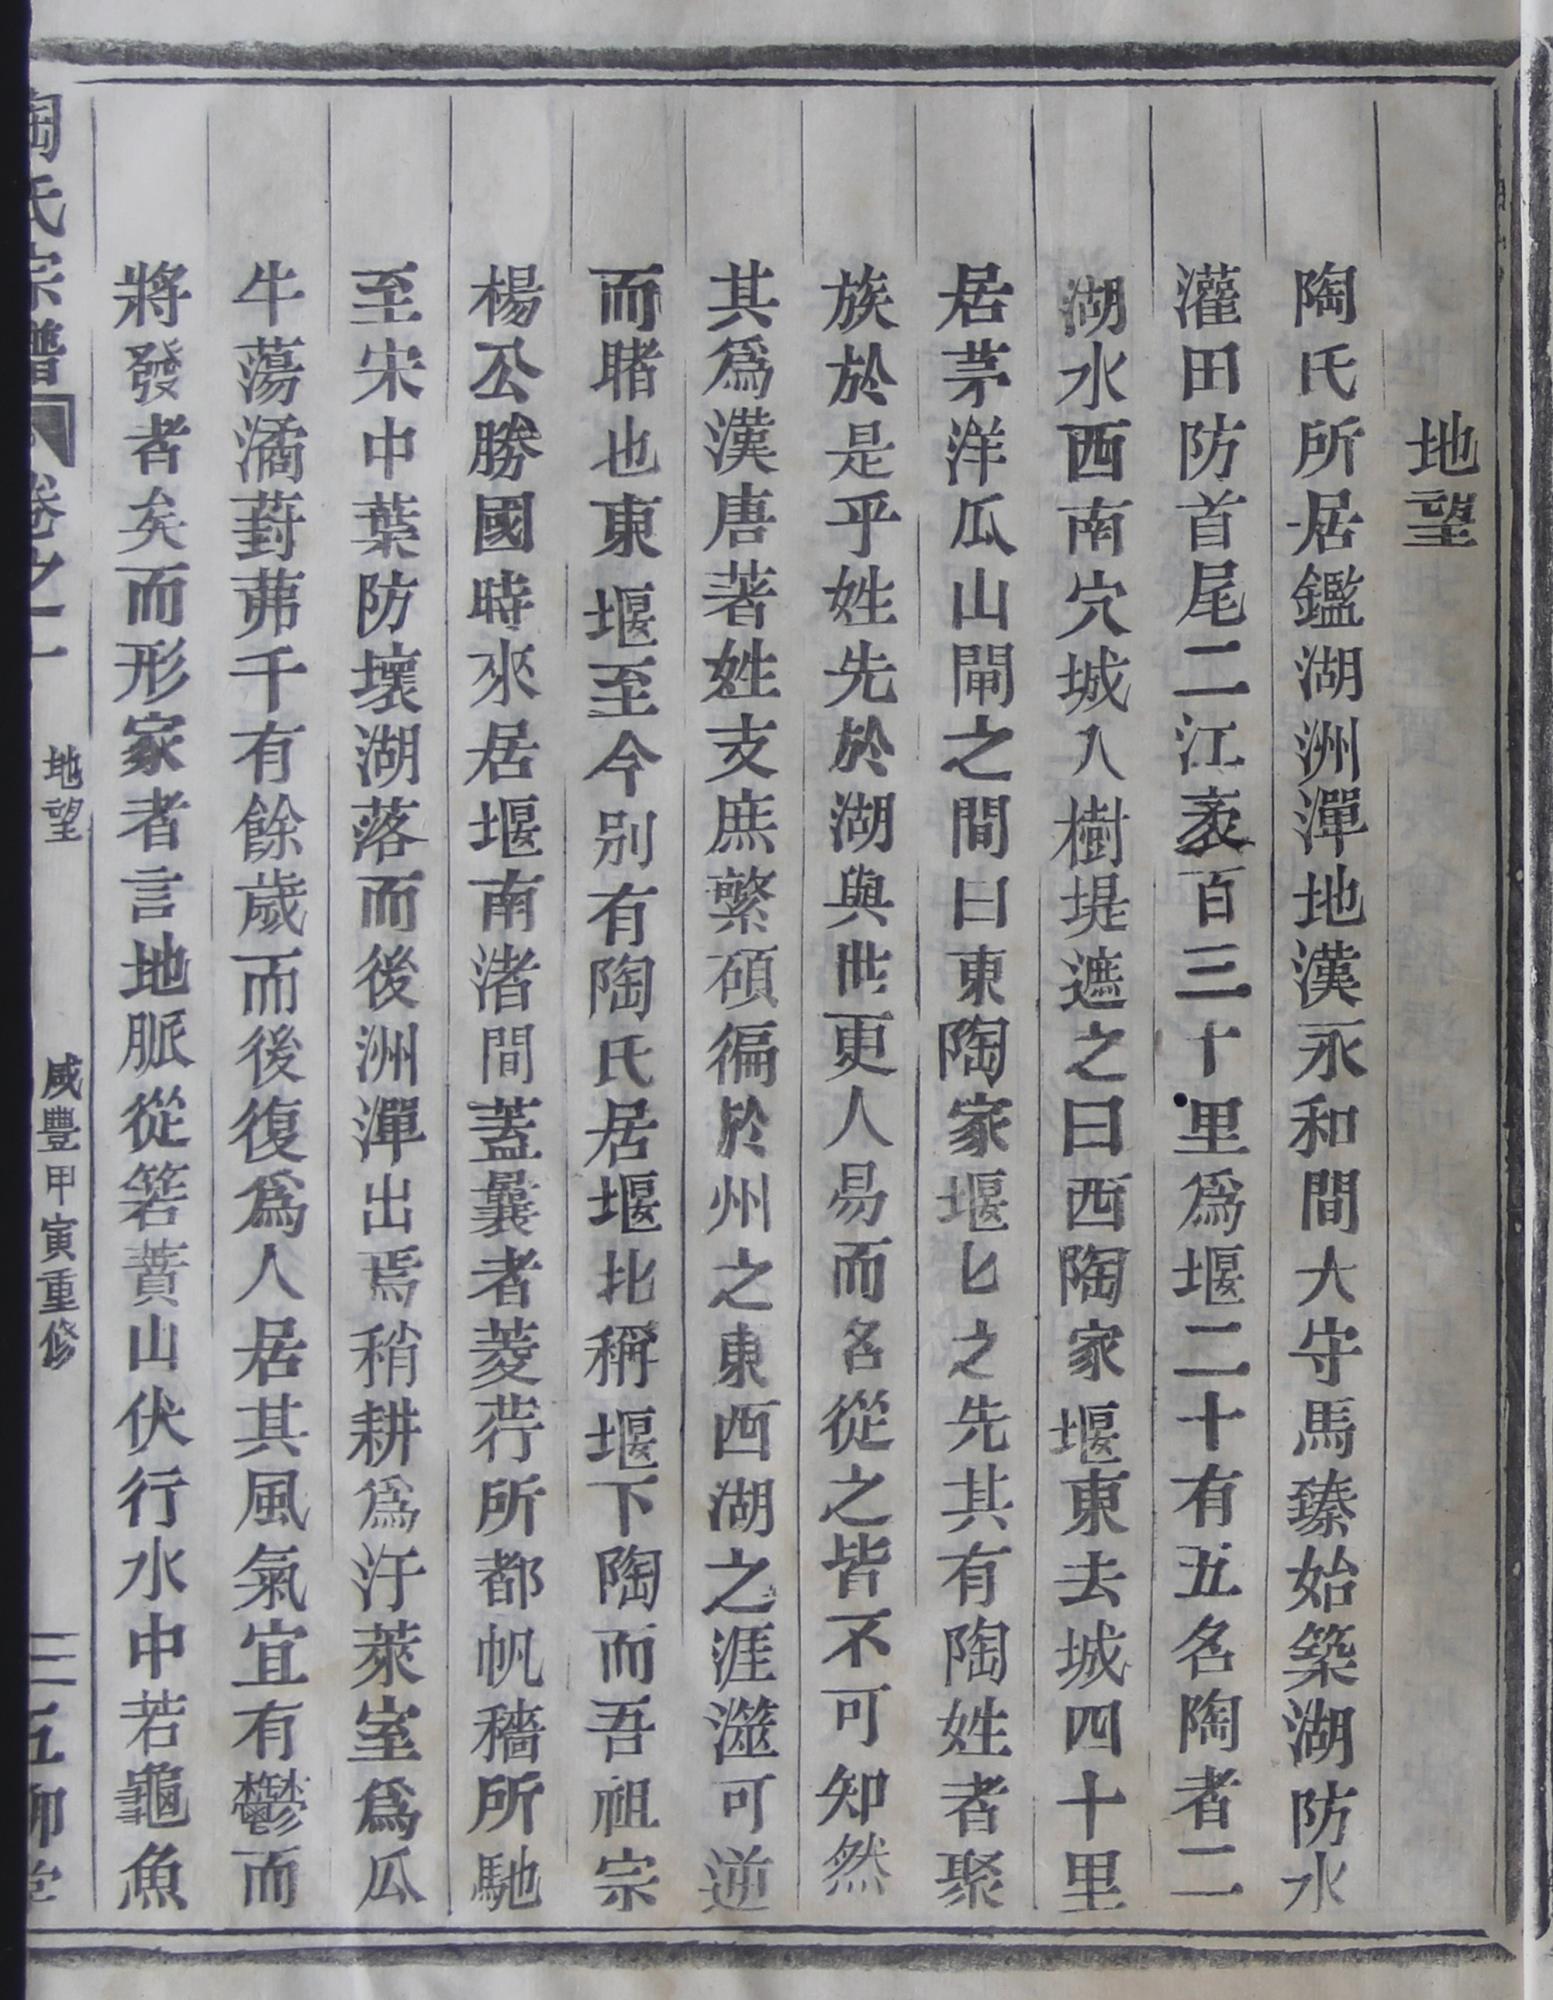 地望
陶氏所居鑑湖洲潬地漢永和間大守馬臻始築湖防水
灌田防首尾二江袤百三十里爲堰二十有五名陶者二
湖水西南穴城入樹堤遮之曰西陶家堰東去城四十里
居茅洋瓜山閘之間曰東陶家堰匕之先其有陶姓者聚
族於是乎姓先於湖與世更人易而名從之皆不可知然
其爲漢唐著姓支庶繁碩徧於州之東西湖之涯澨可逆
而睹也東堰至今別有陶氏居堰北稱堰下陶而吾祖宗
楊公勝國時來居堰南渚間蓋曩者菱荇所都帆檣所馳
至宋中葉防壞湖落而後洲潬出焉稍耕爲汙萊室爲瓜
牛蕩潏葑茀千有餘歲而後復爲人居其風氣宜有鬱而
將發者矣而形家者言地脈從箬蕢山伏行水中若龜魚
陶氏宗譜 卷之一 地望 咸豐甲寅重修 三 五柳堂